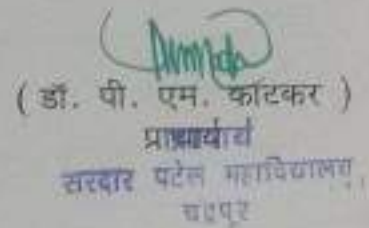 ( डॉ. पी. एम. काटकर )
प्राचार्य
सरदार पटेल महाविद्यालय,
चंद्रपूर